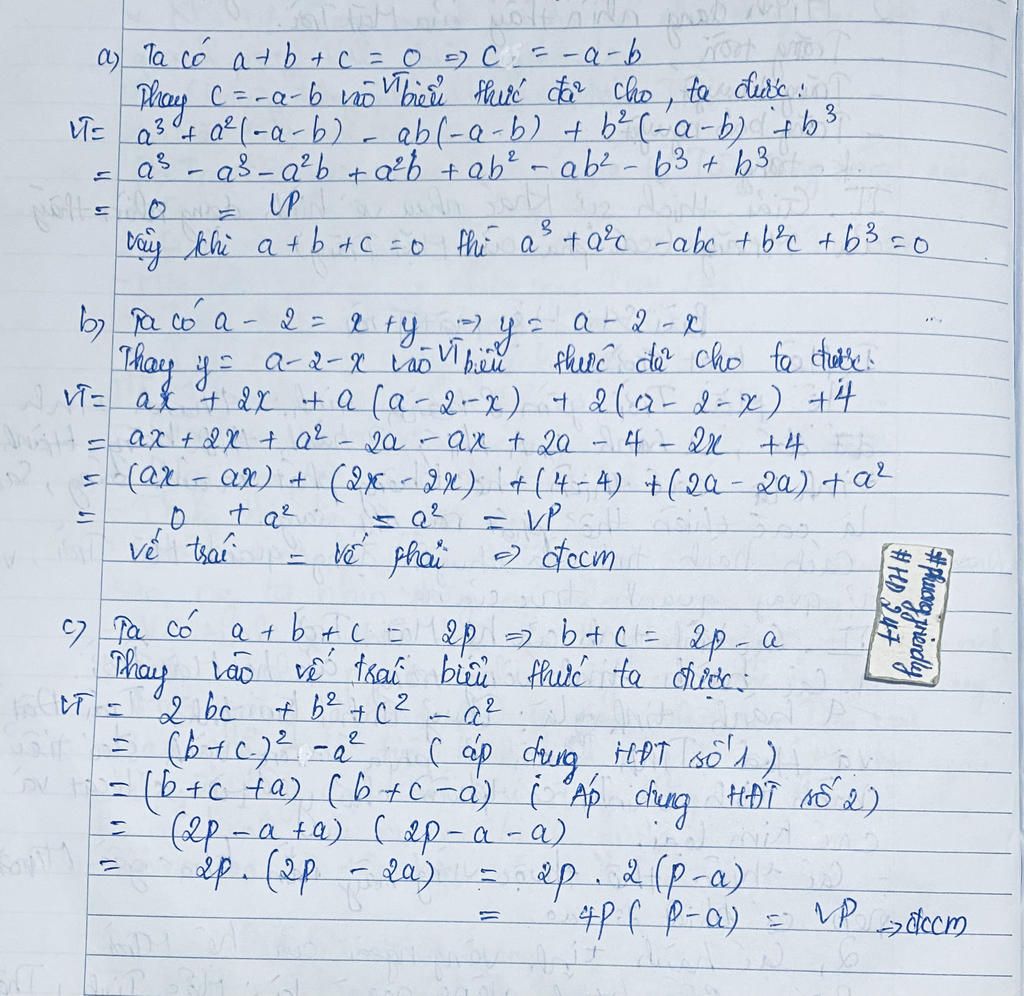 a) Ta có a + b + c = 0 => c = -a - b
Thay c = -a - b vào VT biểu thức đã cho, ta được:
VT = a³ + a²(-a - b) - ab(-a - b) + b²(-a - b) + b³
= a³ - a³ - a²b + a²b + ab² - ab² - b³ + b³
= 0 = VP
Vậy khi a + b + c = 0 thì a³ + a²c - abc + b²c + b³ = 0
b) Ta có a - 2 = x + y => y = a - 2 - x
Thay y = a - 2 - x vào VT biểu thức đã cho ta được:
VT = ax + 2x + a(a - 2 - x) + 2(a - 2 - x) + 4
= ax + 2x + a² - 2a - ax + 2a - 4 - 2x + 4
= (ax - ax) + (2x - 2x) + (4 - 4) + (2a - 2a) + a²
= 0 + a² = a² = VP
Vế trái = vế phải => đccm
c) Ta có a + b + c = 2p => b + c = 2p - a
Thay vào vế trái biểu thức ta được:
VT = 2bc + b² + c² - a²
= (b + c)² - a² (áp dụng HĐT số 1)
= (b + c + a) (b + c - a) (Áp dụng HĐT số 2)
= (2p - a + a) (2p - a - a)
= 2p . (2p - 2a) = 2p . 2(p - a)
= 4p(p - a) = VP => đccm
#HD 247